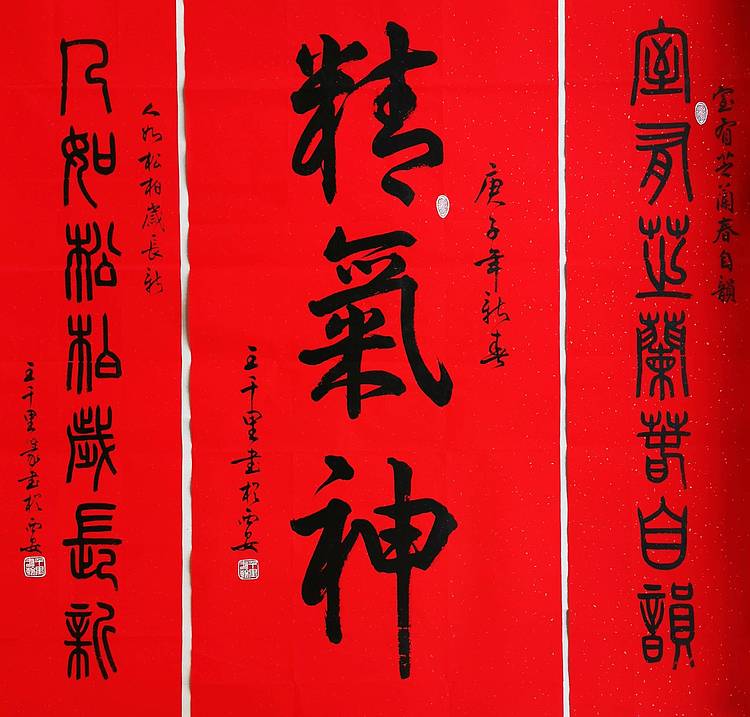 室有芝蘭春自韻
室有芝蘭春自韻
精氣神
庚子年新春
王千里書於西安
人如松柏歲長新
人如松柏歲長新
王千里篆書於西安